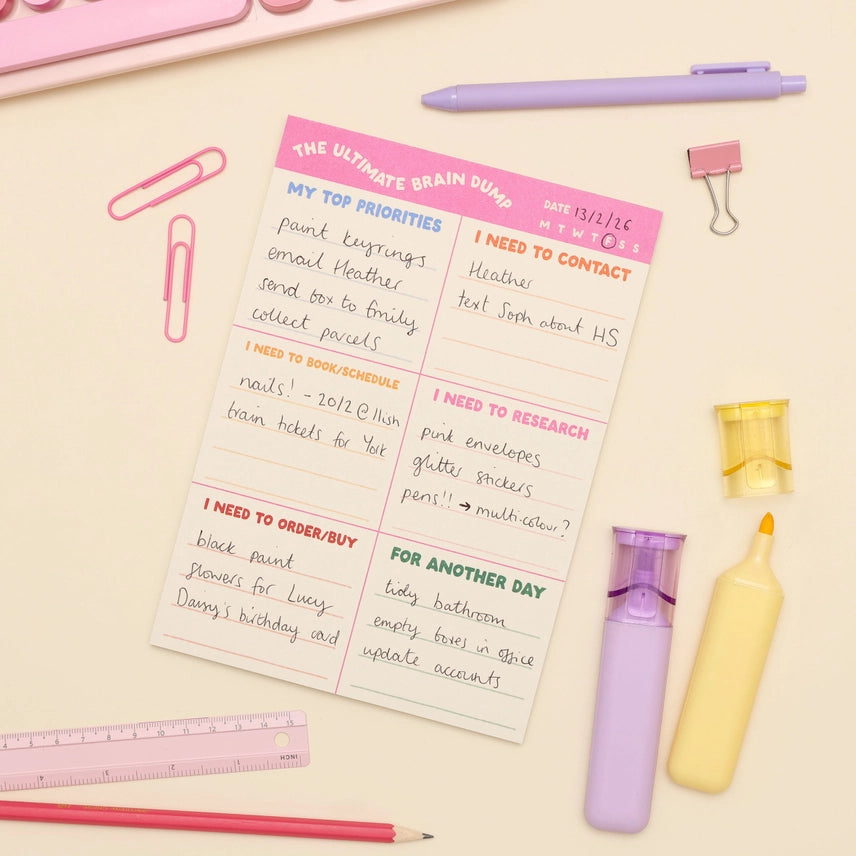 THE ULTIMATE BRAIN DUMP
DATE 13/2/26
M T W T F S S
MY TOP PRIORITIES
paint keyrings
email Heather
send box to Emily
collect parcels
I NEED TO CONTACT
Heather
text Soph about HS
I NEED TO BOOK/SCHEDULE
nails! - 20/2 @ 11ish
train tickets for York
I NEED TO RESEARCH
pink envelopes
glitter stickers
pens!! → multi-colour?
I NEED TO ORDER/BUY
black paint
flowers for Lucy
Daisy's birthday card
FOR ANOTHER DAY
tidy bathroom
empty boxes in office
update accounts
4 5 6 7 8 9 10 11 12 13 14 15
4 3 2 1 INCH